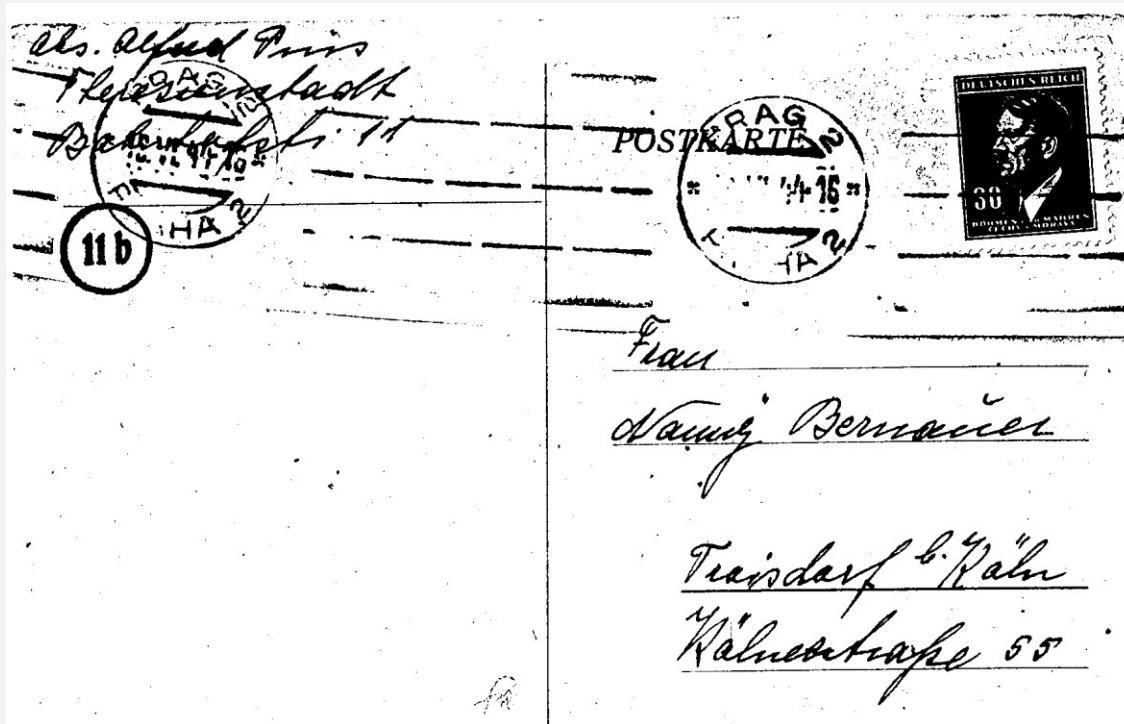 Abs. Alfred Prins
Theresienstadt
Bahnhofstr. 11
PRAG 2
PRAHA 2
11 b
POSTKARTE
PRAG 2
44 16
HA 2
DEUTSCHES REICH
30
BÖHMEN u. MÄHREN
ČECHY a MORAVA
Frau
Nanny Bernauer
Troisdorf b. Köln
Kölnerstraße 55